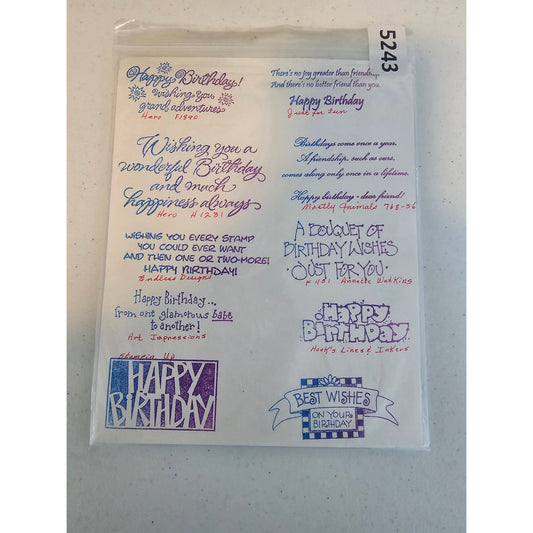 5243
Happy Birthday!
wishing you
grand adventures
Hero F1890
There's no joy greater than friendship
And there's no better friend than you.
Happy Birthday
Just for Fun
Wishing you a
wonderful Birthday
and much
happiness always
Hero H1231
Birthdays come once a year.
A friendship, such as ours,
comes along only once in a lifetime.
Happy birthday - dear friend!
Mostly Animals 768-S6
WISHING YOU EVERY STAMP
YOU COULD EVER WANT
AND THEN ONE OR TWO-MORE!
HAPPY BIRTHDAY!
Endless Designs
A BOUQUET OF
BIRTHDAY WISHES
· JUST FOR YOU ·
F 431 Annette Watkins
Happy Birthday...
from one glamorous babe
to another!
Art Impressions
Happy
Birthday
Hook's Lines & Inkers
Stampin Up
HAPPY
BIRTHDAY
BEST WISHES
ON YOUR
BIRTHDAY